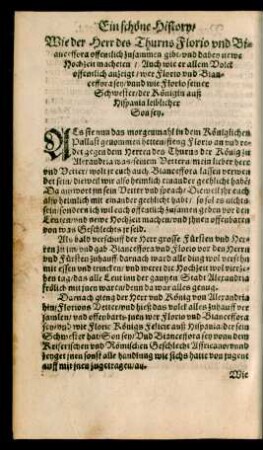 Ein schöne History/
Wie der Herr des Thurns Florio vnd Bi-
anceffora offentlich zusamen gibt/ vnd daben newe
Hochzeit macheten / Auch wie er allem Volck
offentlich anzeigt / wer Florio vnd Bian-
ceffora sey/ vnnd wie Florio seiner
Schwester/ der Königin auß
Hispania leiblicher
Son sey.
ALs sie nun das morgenmahl in dem Königlichen
Pallast genommen hetten/ fieng Florio an vnd re-
det gegen dem Herren des Thurns der König in
Alexandria was/ seinem Vettern/ mein lieber herr
vnd Vetter/ wolt je euch auch Bianceffora lassen verwen
det sein/ dieweil wir also heimlich einander geehlicht habẽ?
Da antwort im sein Vetter vnd sprach: Dieweil jhr euch
also heimlich mit einander geehlicht habt/ so sol es nichts
sein/ sondern ich wil euch offentlich zusamen geben vor den
Leuten/ vnd newe Hochzeit machen/ vnd jhnen offenbaren
von was Geschlechts jr seid.
Als bald verschuff der Herr grosse Fürsten vnd Her-
ren zu jm vnd gab Bianceffora vnd Florio vor den Herrn
vnd Fürsten zuhauff/ darnach ward alle ding wol versehn
mit essen vnd trincken/ vnd weret die Hochzeit wol viertze-
hen tag/ das alle Leut inn der gantzen Statt Alexandria
frölich mit jnen waren/ denn da war alles genug.
Darnach gieng der Herr vnd König von Alexandria
hin/ Florions Vetter/ vnd hieß das volck alles zuhauff ver
samlen/ vnd offenbart jnen wer Florio vnd Bianceffora
sey/ vnd wie Florio Königs Felicen auß Hispania/ der sein
Schwester hat/ Son sey/ Vnd Bianceffora sey vonn dem
Keiserischen vnd Römischen Geschlecht Affricani/ vnd
zeyget jnen sonst alle handlung wie sichs hatte von jugent
auff mit jnen zugetragen/ an.
Wie